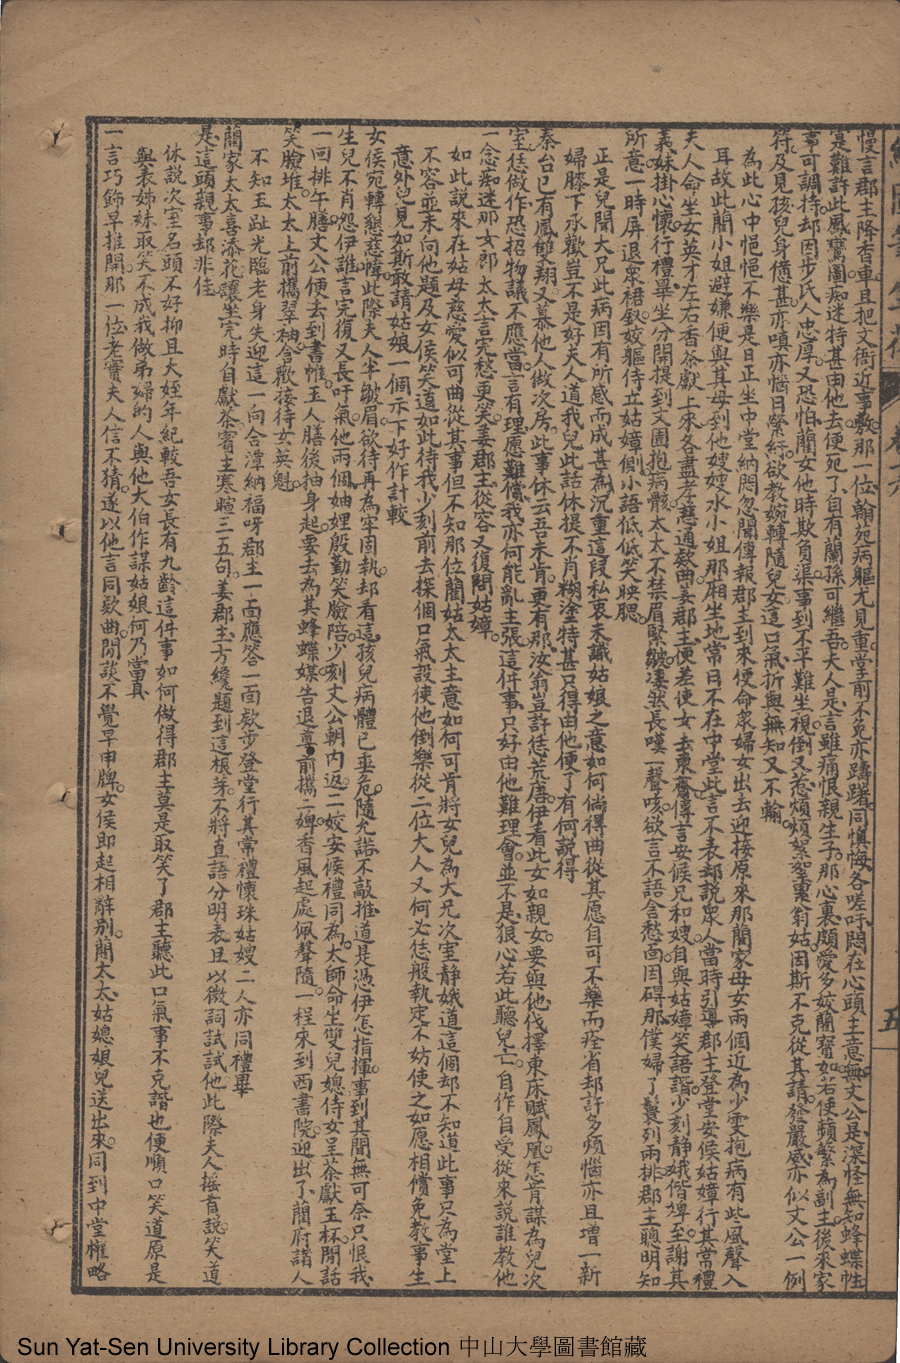 慢言郡主降香車且把文衙近事敷那一位翰苑病軀尤見重堂前不免亦躊躇同慎悔各嗟吁悶在心頭主意無文公是深怪無知蜂蝶性
寔是難許此鳳鸞圖痴迷特甚由他去便死了自有蘭孫可繼吾夫人是言雖痛恨親生子那心裏頗愛多姣蘭寳如若使頻繁為副主後來家
事可調持却因步氏人忠厚又恐怕蘭女他時欺負渠事到不平難坐視倒又惹煩煩絮絮裏翁姑因斯不克從其請發嚴威亦似文公一例
符及見孩兒身憊甚亦嗔亦惱日縈紆欲教婉轉隨兒女這口氣折與無知又不輸
為此心中悒悒不樂是日正坐中堂納悶忽聞傳報郡主到來便命衆婦女出去迎接原來那蘭家母女兩個近為少雯抱病有些風聲入
耳故此蘭小姐避嫌便與其母到他嫂嫂水小姐那廂坐地常日不在中堂此言不表却說衆人當時引導郡主登堂安候姑嫜行其常禮
夫人命坐女英才左右香茶獻上來各盡孝慈通欵曲姜郡主便差使女去東齋傳言安候兄和嫂自與姑嫜笑語諧少刻靜娥偕婢至謝其
義妹掛心懷行禮畢坐分開提到文園抱病骸太太不禁眉緊皺凄然長嘆一聲咳欲言不語含愁面因碍那僕婦了鬟列兩排郡主聰明知
所意一時屏退衆裙釵姣軀侍立姑嫜側小語低低笑暎腮
正是兒聞大兄此病因有所感而成甚為沉重這段私衷未識姑娘之意如何倘得曲從其愿自可不藥而痊省却許多煩惱亦且增一新
婦膝下承歡豈不是好夫人道我兒此話休提不肖糊塗特甚只得由他便了有何說得
秦台已有鳳雙翔又慕他人做次房此事休云吾未肯更有那汝翁豈許恁荒唐伊看此女如親女要與他伐擇東床賦鳳凰怎肯謀為兒次
室恁做作恐招物議不應當言有理愿難償我亦何能亂主張這件事只好由他難理會並不是狠心若此聽兒亡自作自受從來説誰教他
一念痴迷那女郎太太言完愁更笑姜郡主從容又復問姑嫜
如此説來在姑姆慈愛似可曲從其事但不知那位蘭姑太太主意如何可肯將女兒為大兄次室静娥道這個却不知道此事只為堂上
不容並未向他題及女侯笑道如此待我少刻前去探個口氣設使他倒樂從二位大人又何必恁般執定不妨使之如愿相償免教事生
意外兒見如斯敢請姑娘一個示下好作計較
女侯宛轉懇慈幃此際夫人半皺眉欲待再為牢固執却看這孩兒病體已垂危隨允諾不敲推道是憑伊怎指揮事到其間無可奈只恨我
生兒不肖怨伊誰言完復又長吁氣他兩個妯娌殷勤笑臉陪少刻文公朝内返二姣安候禮同為太師命坐雙兒媳侍女呈茶獻玉杯閒話
一回排午膳文公便去到書帷玉人膳後抽身起要去為其蜂蝶媒告退尊前攜二婢香風起處佩聲隨一程來到西書院迎出了蘭府諸人
笑臉堆太太上前攜翠袖含歡接待女英魁
不知玉趾光臨老身失迎這一向合潭納福呀郡主一面應答一面欵步登堂行其常禮懷珠姑嫂二人亦同禮畢
蘭家太太喜添花讓坐完時自獻茶賓主寒暄三五句姜郡主方纔題到這根芽不將直語分明表且以微詞試試他此際夫人搖首說笑道
是這頭親事却非佳
休説次室名頭不好抑且大姪年紀較吾女長有九齡這件事如何做得郡主莫是取笑了郡主聽此口氣事不克諧也便順口笑道原是
與表姊妹取笑不成我做弟婦的人與他大伯作謀姑娘何乃當真
一言巧飾早推開那一位老實夫人信不猜遂以他言同欵曲閒談不覺早申牌女侯即起相辭別蘭太太姑媳娘兒送出來同到中堂權略
卷十六
五
Sun Yat-Sen University Library Collection 中山大學圖書館藏